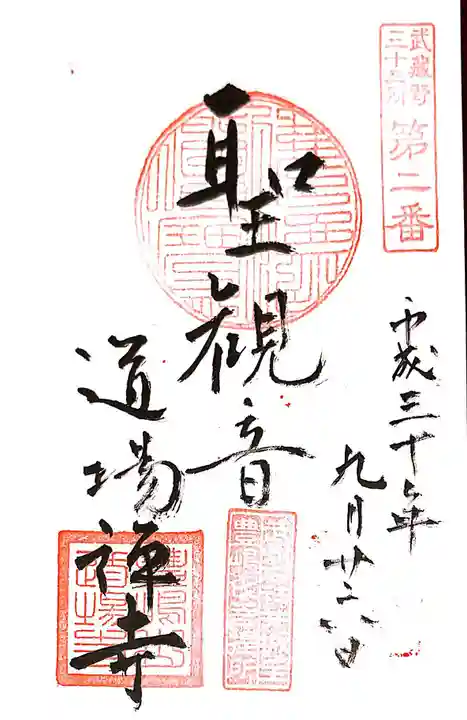 武蔵野
三十三所
第二番
平成三十年
九月廿六日
聖観音
道場禅寺